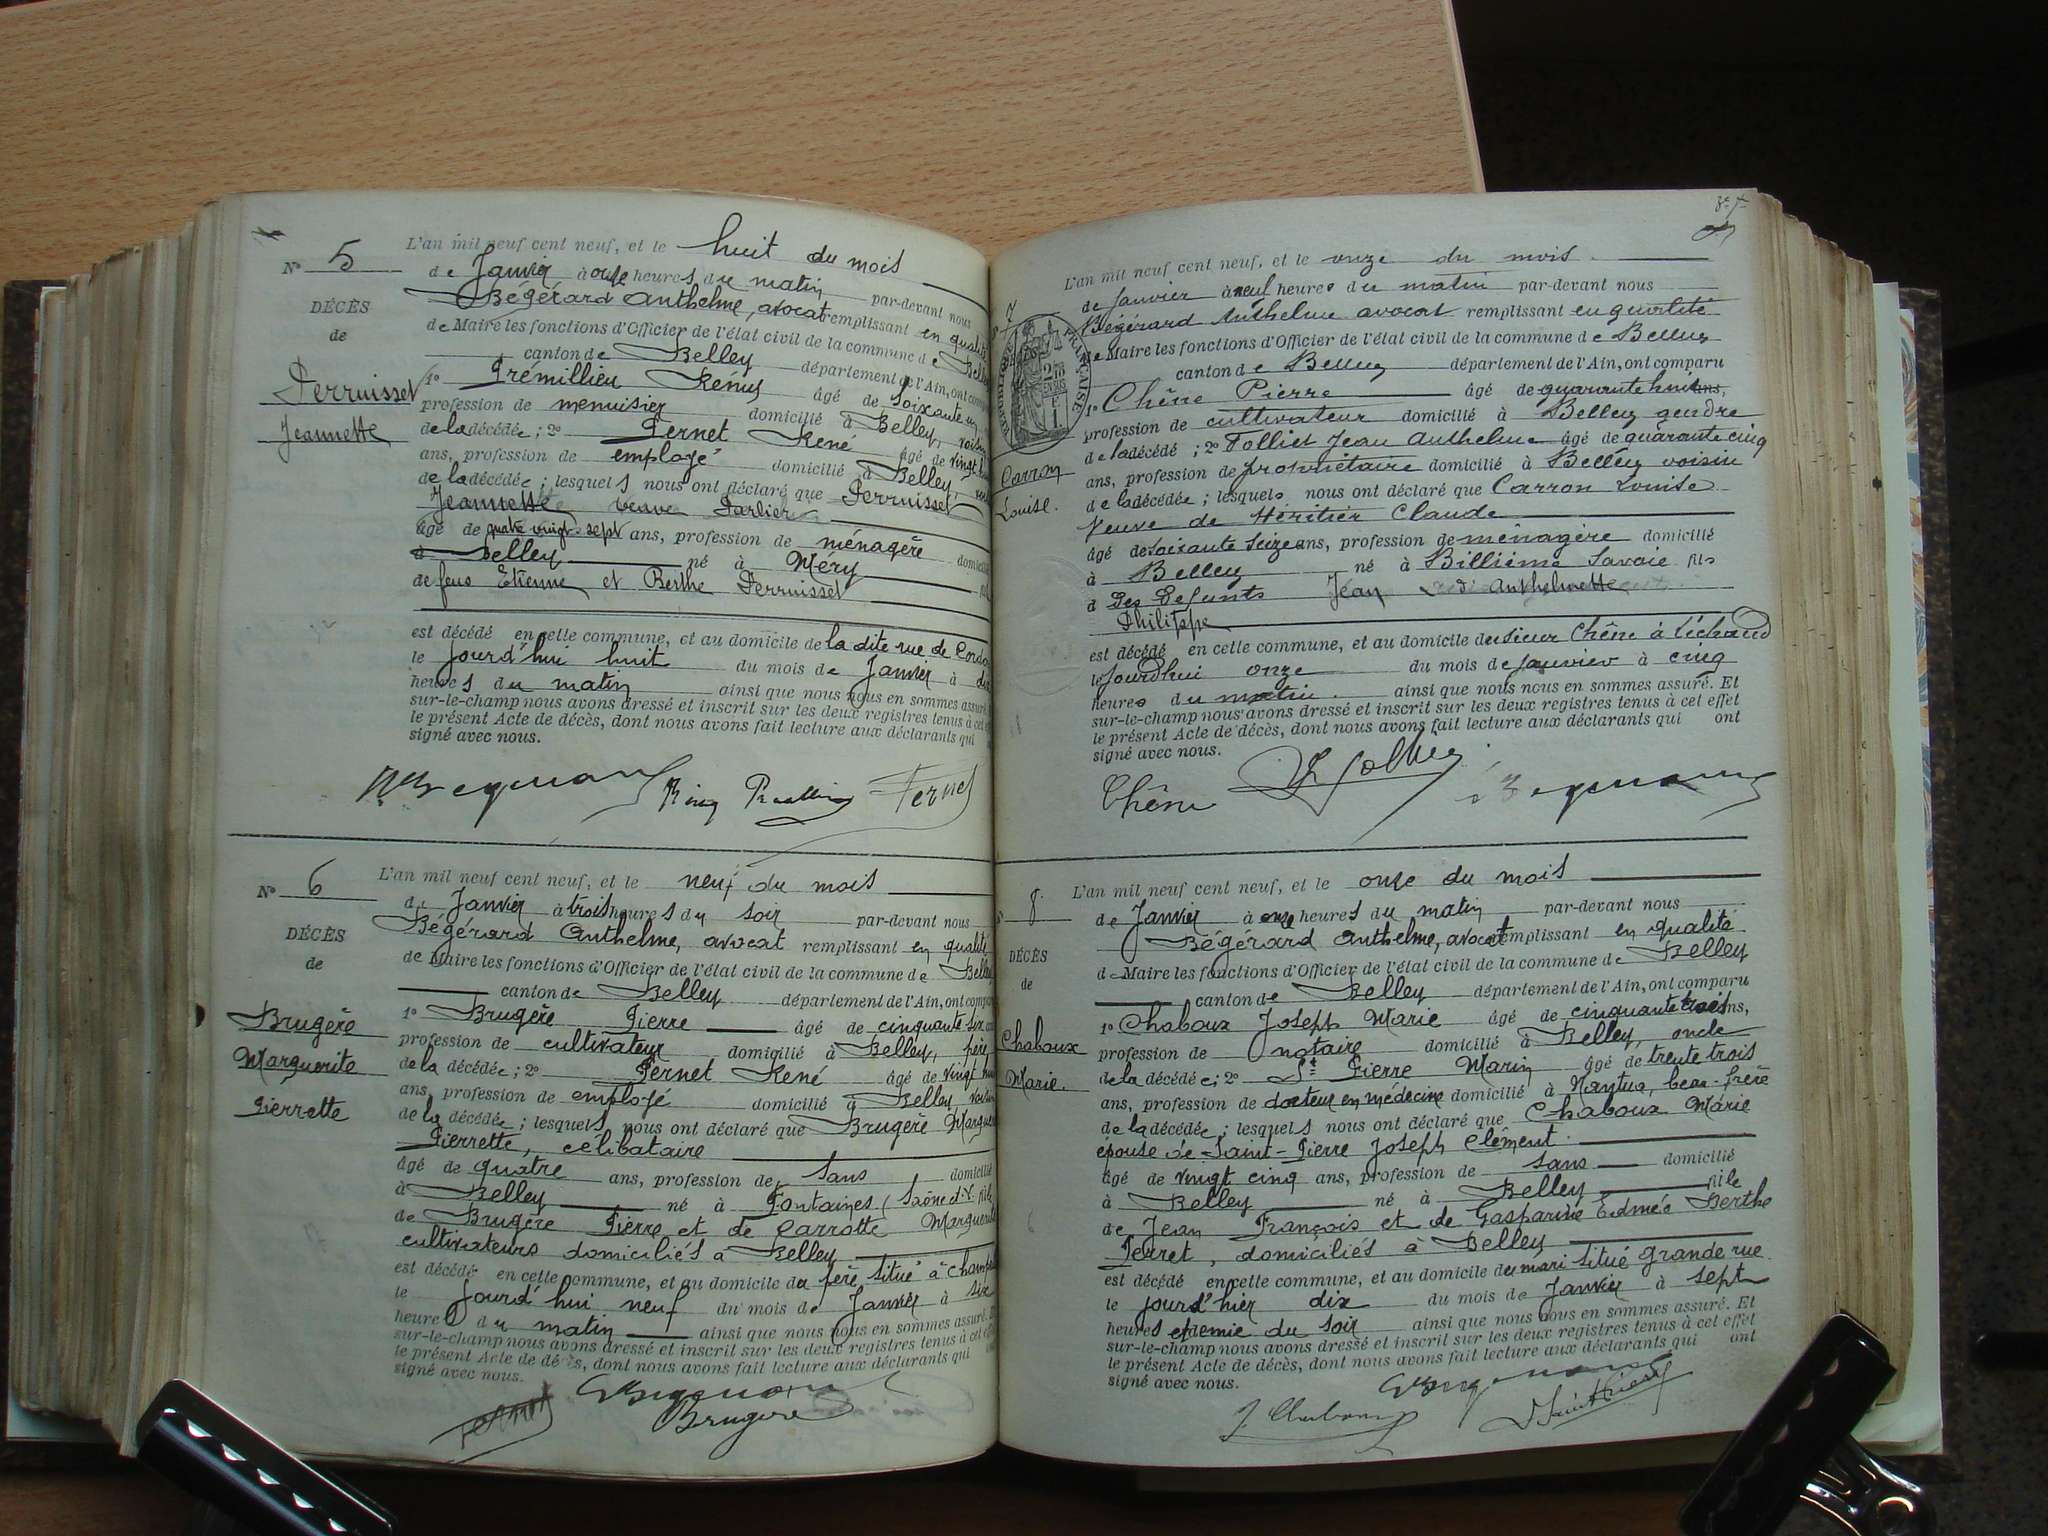 N° 5
DÉCÈS
de
Perruisset
Jeannette
L'an mil neuf cent neuf, et le huit du mois
de Janvier à onze heures du matin par-devant nous
Bégérard Anthelme, avocat remplissant en qualité
de Maire les fonctions d'Officier de l'état civil de la commune de Belley
canton de Belley département de l'Ain, ont comparu
1° Prémillieu Rémy âgé de soixante un
profession de menuisier domicilié à Belley, voisin
de la décédée; 2° Pernet René âgé de vingt huit
ans, profession de employé domicilié à Belley,
de la décédée; lesquels nous ont déclaré que Perruisset
Jeannette veuve Parlier
âgé de quatre vingt-sept ans, profession de ménagère domicilié
à Belley né à Méry
de feus Etienne et Berthe Perruisset
est décédé en cette commune, et au domicile de la dite rue de
le jourd'hui huit du mois de Janvier à dix
heures du matin ainsi que nous nous en sommes assuré. Et
sur-le-champ nous avons dressé et inscrit sur les deux registres tenus à cet effet
le présent Acte de décès, dont nous avons fait lecture aux déclarants qui
signé avec nous.
Pernet
N° 6
DÉCÈS
de
Brugère
Marguerite
Pierrette
L'an mil neuf cent neuf, et le neuf du mois
de Janvier à trois heures du soir par-devant nous
Bégérard Anthelme, avocat remplissant en qualité
de Maire les fonctions d'Officier de l'état civil de la commune de Belley
canton de Belley département de l'Ain, ont comparu
1° Brugère Pierre âgé de cinquante six ans
profession de cultivateur domicilié à Belley, père
de la décédée; 2° Pernet René âgé de vingt huit
ans, profession de employé domicilié à Belley voisin
de la décédée; lesquels nous ont déclaré que Brugère Marguerite
Pierrette, célibataire
âgé de quatre ans, profession de sans domicilié
à Belley né à Fontaines (Saône-et-L. fille
de Brugère Pierre et de Carrotte Marguerite
cultivateurs domiciliés à Belley
est décédé en cette commune, et au domicile du père, situé à
le jourd'hui neuf du mois de Janvier à six
heures du matin ainsi que nous nous en sommes assuré.
sur-le-champ nous avons dressé et inscrit sur les deux registres tenus à cet effet
le présent Acte de décès, dont nous avons fait lecture aux déclarants qui
signé avec nous.
Pernet
Brugère
7
RÉPUBLIQUE FRANÇAISE
Carron
Louise.
L'an mil neuf cent neuf, et le onze du mois
de Janvier à neuf heures du matin par-devant nous
Bégérard Anthelme avocat remplissant en qualité
de Maire les fonctions d'Officier de l'état civil de la commune de Belley
canton de Belley département de l'Ain, ont comparu
1° Chêne Pierre âgé de quarante huit ans,
profession de cultivateur domicilié à Belley gendre
de la décédé; 2° Folliet Jean Anthelme âgé de quarante cinq
ans, profession de propriétaire domicilié à Belley voisin
de la décédée; lesquels nous ont déclaré que Carron Louise
veuve de Héritier Claude
âgé de soixante seize ans, profession de ménagère domicilié
à Belley né à Billième Savoie fils
d Des Defunts Jean et d'Anthelmette
Philippe
est décédé en cette commune, et au domicile du sieur Chêne à
le jourdhui onze du mois de Janvier à cinq
heures du matin. ainsi que nous nous en sommes assuré. Et
sur-le-champ nous avons dressé et inscrit sur les deux registres tenus à cet effet
le présent Acte de décès, dont nous avons fait lecture aux déclarants qui ont
signé avec nous.
Chêne
8.
DÉCÈS
de
Chaboux
Marie.
L'an mil neuf cent neuf, et le onze du mois
de Janvier à onze heures du matin par-devant nous
Bégérard Anthelme, avocat remplissant en qualité
de Maire les fonctions d'Officier de l'état civil de la commune de Belley
canton de Belley département de l'Ain, ont comparu
1° Chaboux Joseph Marie âgé de cinquante trois ans,
profession de notaire domicilié à Belley, oncle
de la décédée; 2° St Pierre Marin âgé de trente trois
ans, profession de docteur en médecine domicilié à Nantua, beau-frère
de la décédée; lesquels nous ont déclaré que Chaboux Marie
épouse de Saint-Pierre Joseph Clément.
âgé de vingt cinq ans, profession de sans domicilié
à Belley né à Belley fille
de Jean François et de Gasparine Edmée Berthe
Perret, domiciliés à Belley
est décédé en cette commune, et au domicile du mari situé Grande rue
le jourd'hier dix du mois de Janvier à sept
heures et demie du soir ainsi que nous nous en sommes assuré. Et
sur-le-champ nous avons dressé et inscrit sur les deux registres tenus à cet effet
le présent Acte de décès, dont nous avons fait lecture aux déclarants qui ont
signé avec nous.
J Chaboux